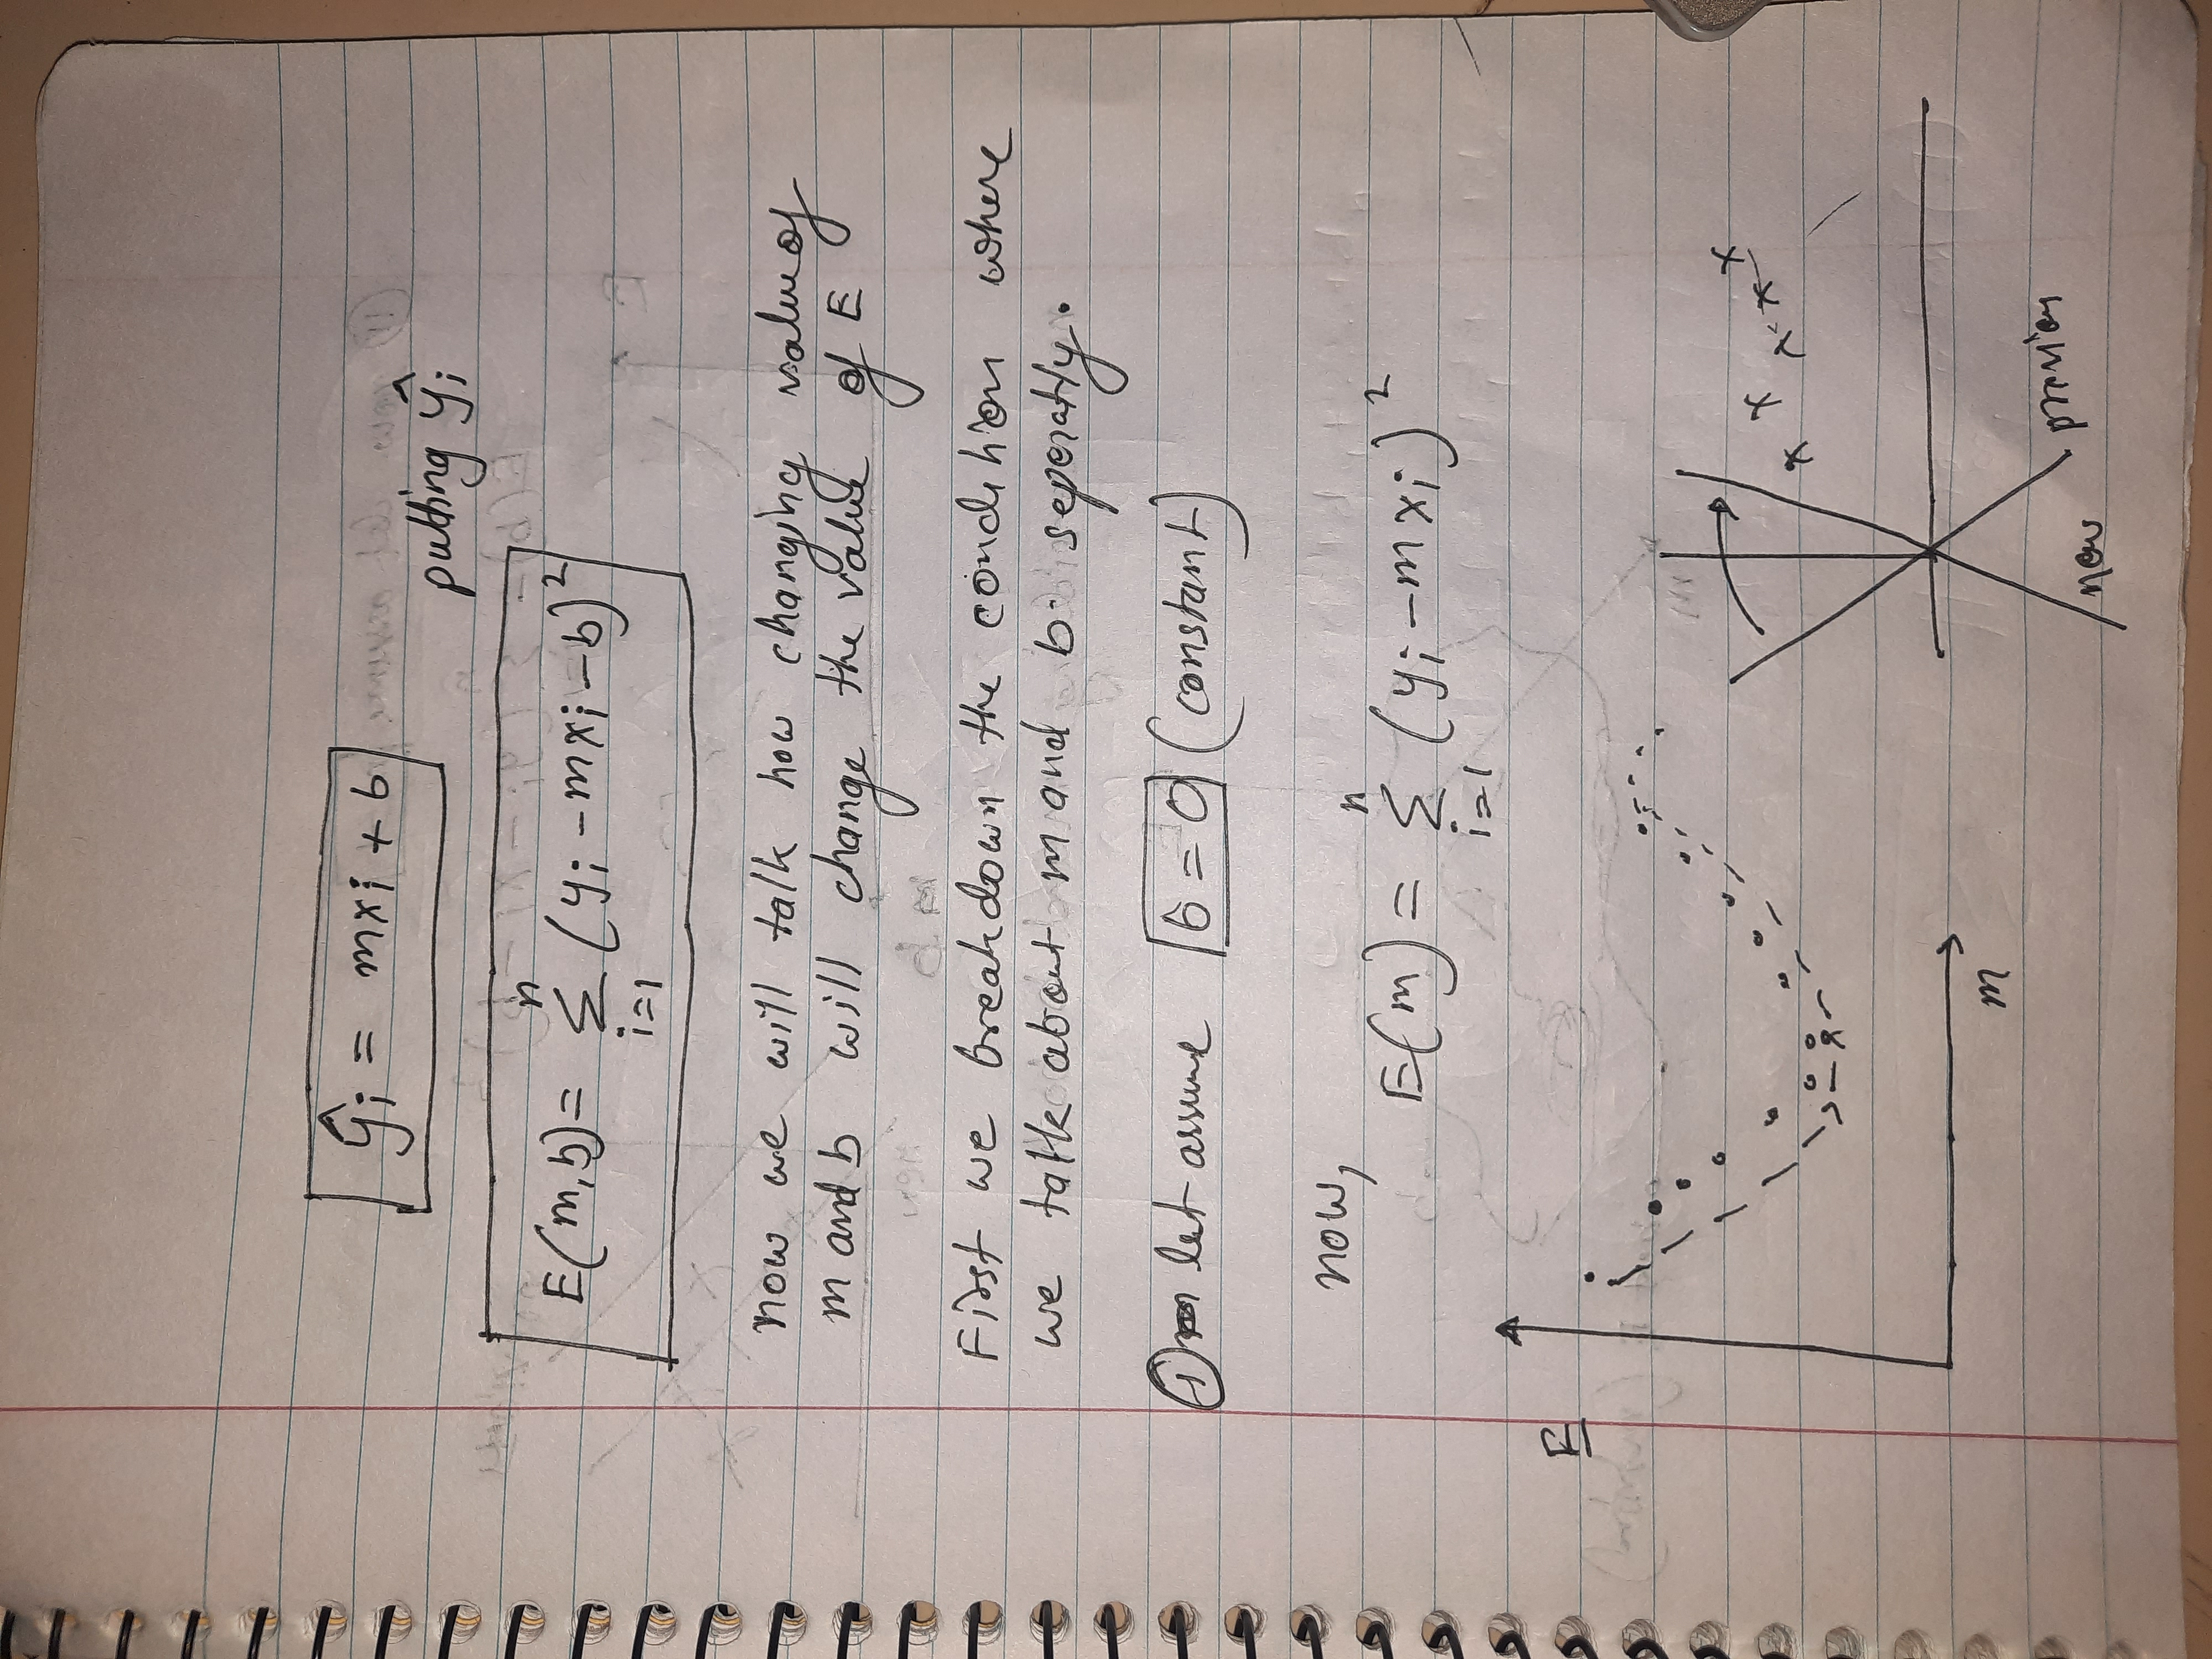 ŷi = mxi + b
putting ŷi
E(m,b) = n∑i=1 (yi - mxi - b)²
now we will talk how changing value of
m and b will change the value of E
First we breakdown the condition where
we talk about m and b seperatly.
(i) let assume b = 0 (constant)
now,
E(m) = n∑i=1 (yi - mxi)²
E
m
new